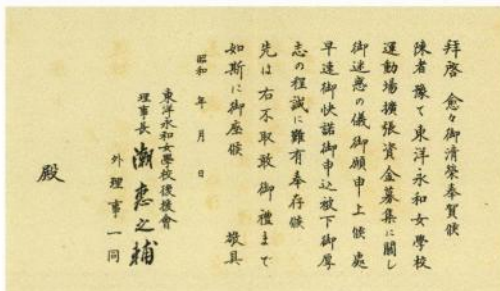 拝啓 愈々御清榮奉賀候
陳者豫て東洋永和女學校
運動場擴張資金募集に關し
御迷惑の儀御願申上候處
早速御快諾御申込被下御厚
志の程誠に難有奉存候
先は右不取敢御禮まで
如斯に御座候 敬具
昭和 年 月 日
東洋永和女學校後援會
理事長 瀬恵之輔
外理事一同
殿